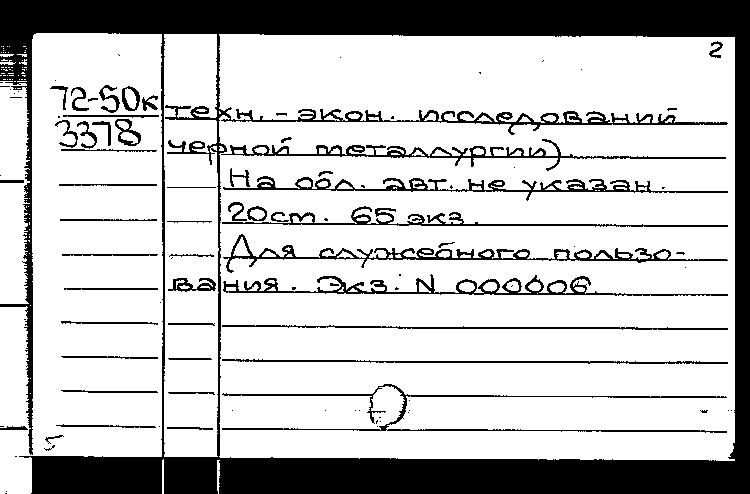 2
72-50к техн.-экон. исследований
3378 черной металлургии).
На обл. авт. не указан.
20см. 65 экз.
Для служебного пользо-
вания. Экз. N 000606.
5